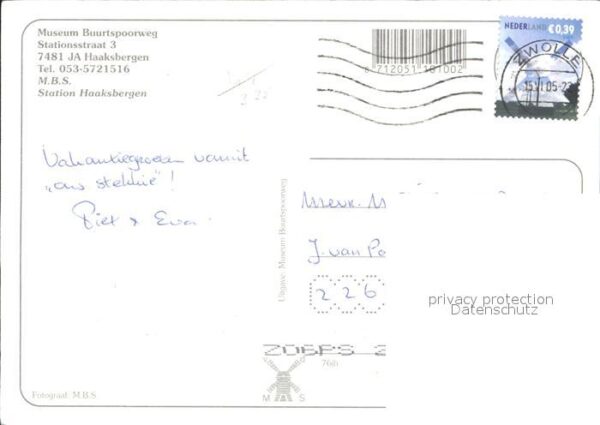 Museum Buurtspoorweg
Stationsstraat 3
7481 JA Haaksbergen
Tel. 053-5721516
M.B.S.
Station Haaksbergen
8 712051 101002
NEDERLAND €0,39
ZWOLLE
Vakantiegroeten vanuit
"ons stekkie"!
Piet & Ewa.
Uitgave: Museum Buurtspoorweg
Mevr. M
J. van
2 2 6
privacy protection
Datenschutz
76th
M S
Fotograaf: M.B.S.